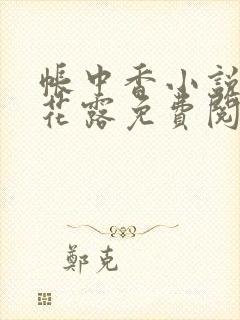 帳中香小說
花露免費閱
鄭克